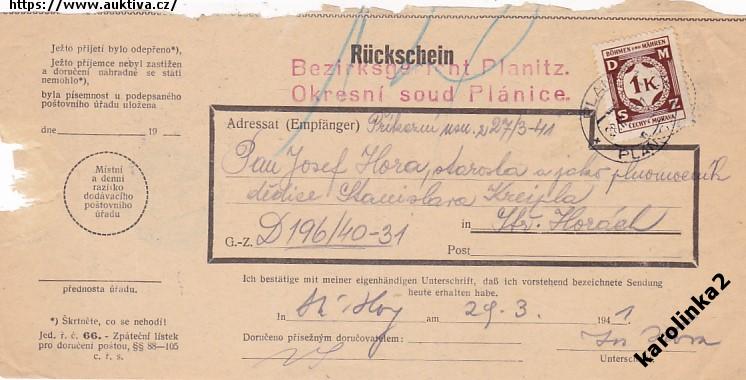 https://www.auktiva.cz/
Ježto přijetí bylo odepřeno*),
Ježto příjemce nebyl zastižen
a doručení náhradné se státi
nemohlo*),
byla písemnost u podepsaného
poštovního úřadu uložena
dne 19
Místní
a denní
razítko
dodávacího
poštovního
úřadu
přednosta úřadu.
*) Škrtněte, co se nehodí!
Jed. ř. č. 66. - Zpáteční lístek
pro doručení poštou, §§ 88—105
c. ř. s.
Rückschein
Bezirksgericht Planitz.
Okresní soud Plánice.
BÖHMEN UND MÄHREN
D M
1 K
S Z
ČECHY A MORAVA
PLAN
Adressat (Empfänger) 27/3-41
Pan Josef Hora, starosta a jako plnomocník
dědice Stanislava Krejpla
in Stř. Horách
G.-Z. D 196/40-31
Post
Ich bestätige mit meiner eigenhändigen Unterschrift, daß ich vorstehend bezeichnete Sendung
heute erhalten habe.
In am 29. 3. 1941
Doručeno přísežným doručovatelem: Jos Hora
Unterschrift
karolinka2